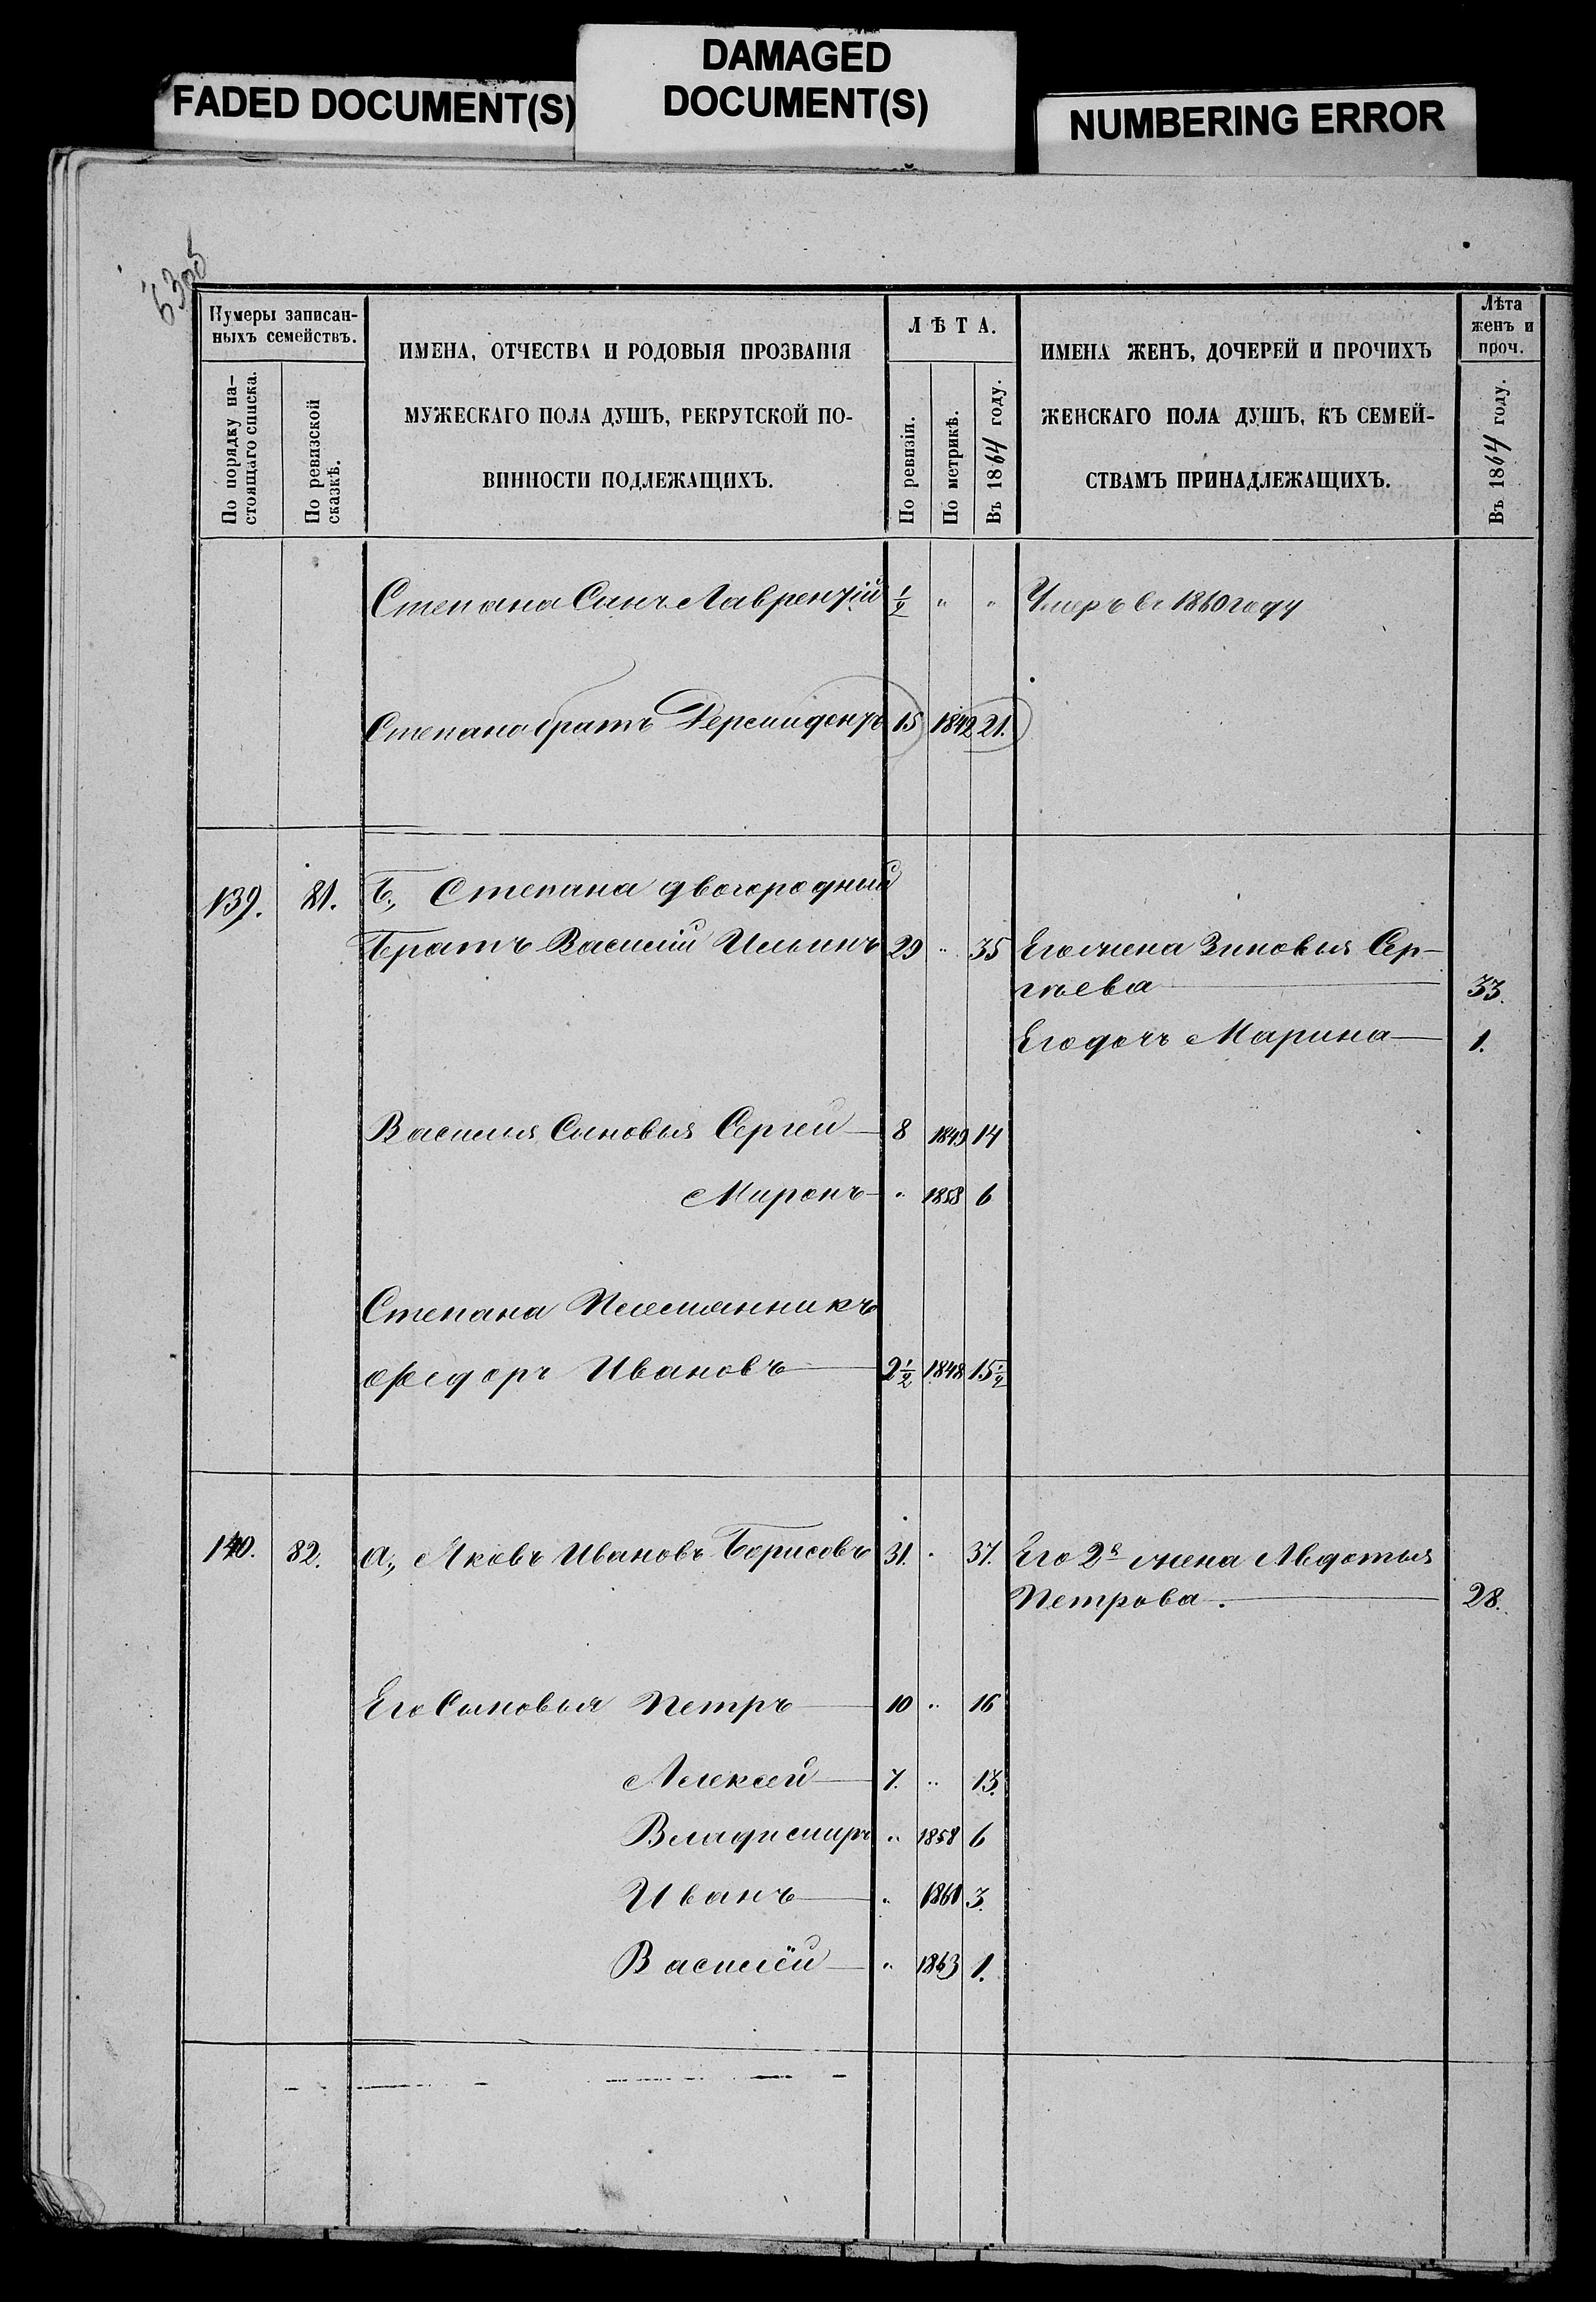 FADED DOCUMENT(S)
DAMAGED
DOCUMENT(S)
NUMBERING ERROR
Нумеры записан-
ныхъ семействъ.
По порядку на-
стоящаго списка.
По ревизской
сказкѣ.
ИМЕНА, ОТЧЕСТВА И РОДОВЫЯ ПРОЗВАНІЯ
МУЖЕСКАГО ПОЛА ДУШЪ, РЕКРУТСКОЙ ПО-
ВИННОСТИ ПОДЛЕЖАЩИХЪ.
ЛѢТА.
По ревизіи.
По метрикѣ.
Въ 1864 году.
ИМЕНА ЖЕНЪ, ДОЧЕРЕЙ И ПРОЧИХЪ
ЖЕНСКАГО ПОЛА ДУШЪ, КЪ СЕМЕЙ-
СТВАМЪ ПРИНАДЛЕЖАЩИХЪ.
Лѣта
женъ и
проч.
Въ 1864 году.
Степана Сынъ Лаврентій ½ " " Умеръ въ 1860 году
Степана братъ 15 1842 21.
139. 81. Б., Степана двогородный
Братъ Василій Ильинъ 29 " 35 Его жена Зиновья Сер-
гѣева 33.
Его дочь Марина 1.
Василия Сыновья Сергей 8 1849 14
Миронъ " 1858 6
Степана Племянникъ
Федоръ Ивановъ 2½ 1848 15½
140. 82. а., Яковъ Ивановъ Борисовъ 31. " 37. Его 2я жена Авдотья
Петрова. 28.
Его Сыновья Петръ 10 " 16
Алексей 7. " 13.
Владимиръ " 1858 6
Иванъ " 1861 3.
Василій " 1863 1.